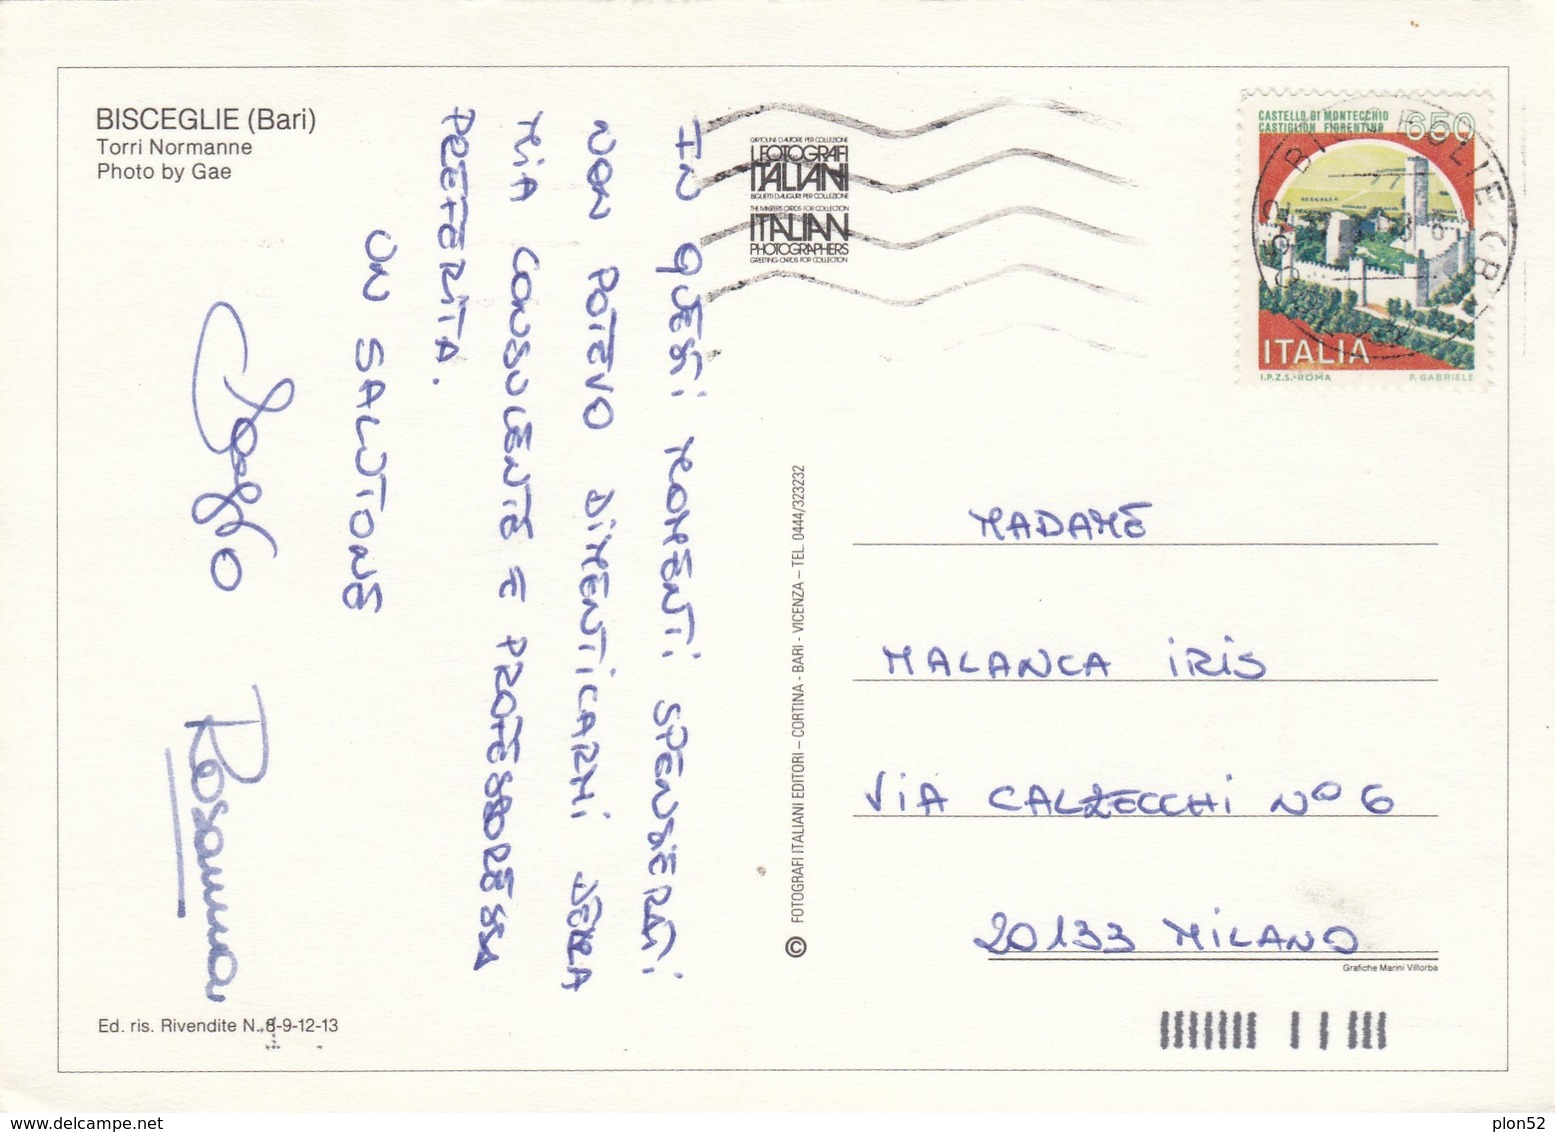 BISCEGLIE (Bari)
Torri Normanne
Photo by Gae
IN QUESTI MOMENTI SPENSIERATI
NON POTEVO DIMENTICARMI DELLA
MIA CONSULENTE E PROFESSORESSA
PREFERITA.
UN SALUTONE
Rosanna
Ed. ris. Rivendite N. 8-9-12-13
CARTOLINE D'AUTORE PER COLLEZIONE
I FOTOGRAFI
ITALIANI
BIGLIETTI D'AUGURI PER COLLEZIONE
THE MASTERS CARDS FOR COLLECTION
ITALIAN
PHOTOGRAPHERS
GREETING CARDS FOR COLLECTION
© FOTOGRAFI ITALIANI EDITORI – CORTINA - BARI - VICENZA – TEL. 0444/323232
CASTELLO DI MONTECCHIO
CASTIGLION FIORENTINO
650
ITALIA
I.P.Z.S.-ROMA P. GABRIELE
MADAME
MALANCA IRIS
VIA CALZECCHI N° 6
20133 MILANO
Grafiche Marini Villorba
plon52